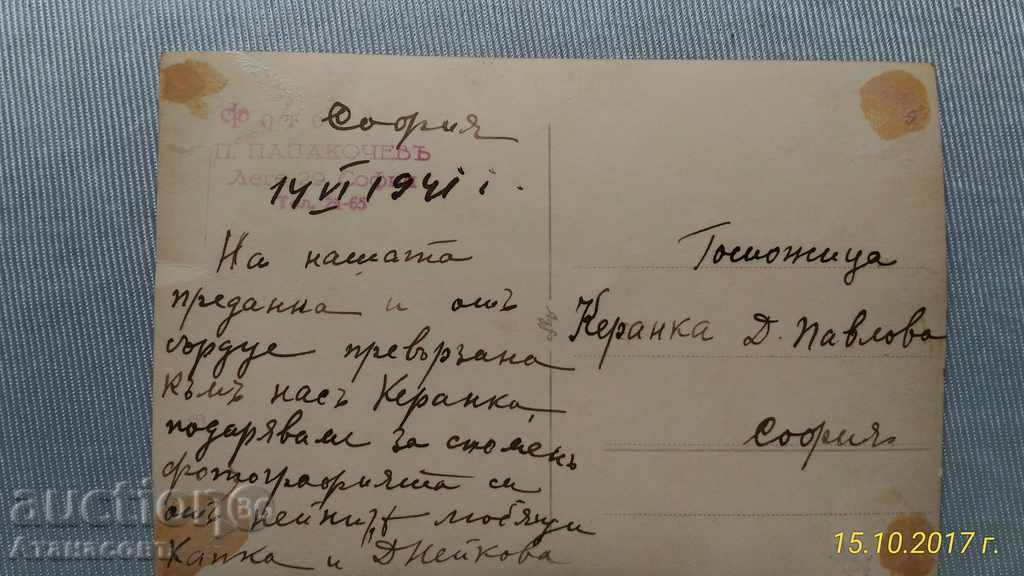 София
П. ПАПАКОЧЕВЪ
София
14 VI 1941 г.
На нашата
преданна и отъ
сърдце превързана
къмъ насъ Керанка,
подарявам за споменъ
фотографията си
отъ нейнитѣ любящи
Хапка и Д Нейкова
Госпожица
Керанка Д. Павлова
София
auction.BG
Атанасовъ
15.10.2017 г.